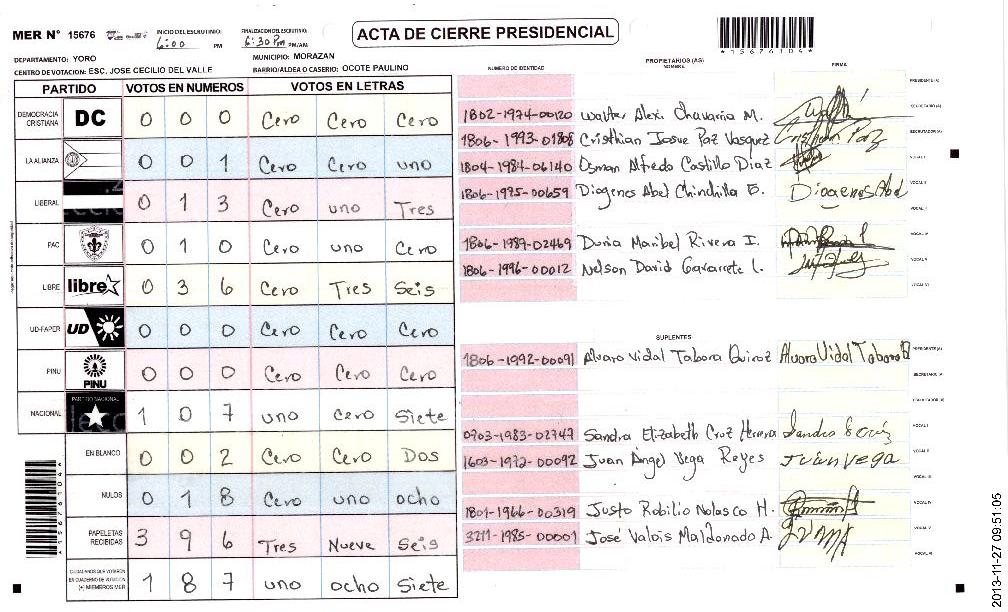 MER N° 15676
INICIO DEL ESCRUTINIO: 6:00 PM
FINALIZACION DEL ESCRUTINIO: 6:30 Pm PM/AM
ACTA DE CIERRE PRESIDENCIAL
*15676104*
DEPARTAMENTO: YORO
MUNICIPIO: MORAZAN
CENTRO DE VOTACION: ESC. JOSE CECILIO DEL VALLE
BARRIO/ALDEA O CASERIO: OCOTE PAULINO
PARTIDO VOTOS EN NUMEROS VOTOS EN LETRAS
DEMOCRACIA CRISTIANA DC 0 0 0 Cero Cero Cero
LA ALIANZA 0 0 1 Cero Cero uno
LIBERAL 0 1 3 Cero uno Tres
PAC 0 1 0 Cero uno Cero
LIBRE libre 0 3 6 Cero Tres Seis
UD-FAPER UD 0 0 0 Cero Cero Cero
PINU PINU 0 0 0 Cero Cero Cero
NACIONAL PARTIDO NACIONAL 1 0 7 uno Cero Siete
EN BLANCO 0 0 2 Cero Cero Dos
NULOS 0 1 8 Cero uno ocho
PAPELETAS RECIBIDAS 3 9 6 Tres Nueve Seis
CIUDADANOS QUE VOTARON EN CUADERNO DE VOTACION (+) MIEMBROS MER 1 8 7 uno ocho Siete
*15676104*
NUMERO DE IDENTIDAD
PROPIETARIOS (AS)
NOMBRE
FIRMA
PRESIDENTE (A)
1802-1974-00120 Walter Alexi Chavarria M. SECRETARIO (A)
1806-1993-01808 Cristhian Josue Paz Vasquez Cristhian Paz ESCRUTADOR (A)
1804-1984-06140 Osman Alfredo Castillo Diaz VOCAL I
1806-1995-00659 Diogenes Abel Chindilla B. Diogenes Abel VOCAL II
1806-1989-02469 Dunia Maribel Rivera I. VOCAL IV
1806-1996-00012 Nelson David Gavarrete L. VOCAL V
VOCAL VI
SUPLENTES
1806-1992-00091 Alvaro Vidal Tabora Quiroz Alvaro Vidal Tabora Q PRESIDENTE (A)
SECRETARIO (A)
ESCRUTADOR (A)
0703-1983-02747 Sandra Elizabeth Cruz Herrera Sandra E Cruz VOCAL I
1603-1972-00092 Juan Angel Vega Reyes Juan Vega VOCAL II
VOCAL III
1801-1966-00319 Justo Robilio Nolasco H. VOCAL IV
3211-1985-00001 José Valois Maldonado A. VOCAL V
VOCAL VI
2013-11-27 09:51:05